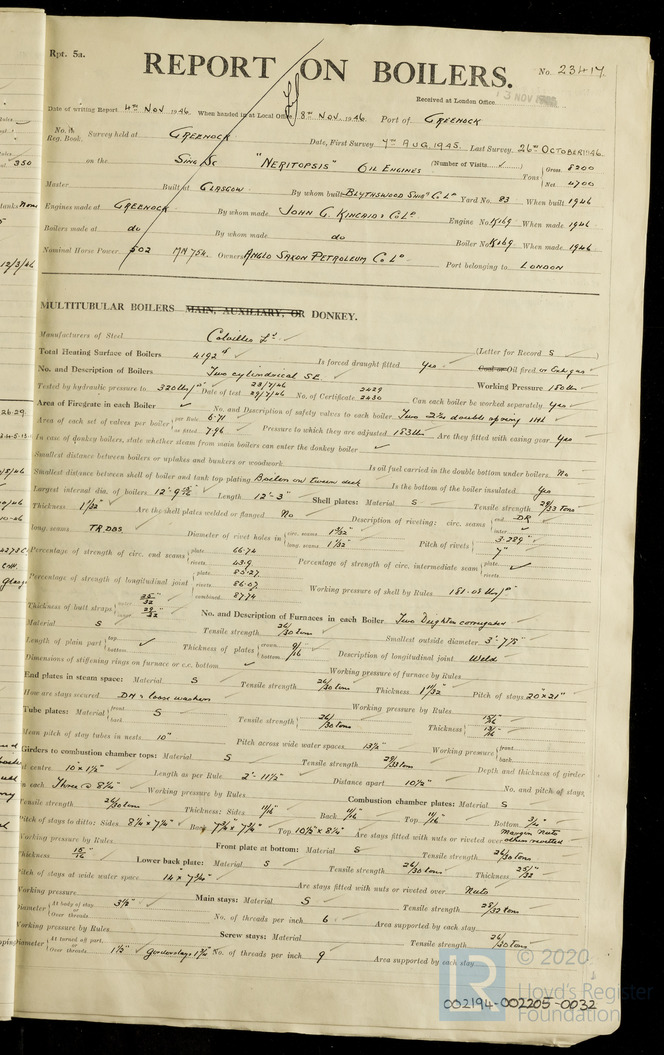 Rpt. 5a.
REPORT ON BOILERS.
No. 23417
Received at London Office 13 NOV 1946
Date of writing Report 4TH NOV 1946 When handed in at Local Office 8TH NOV. 1946 Port of GREENOCK
No. in Reg. Book. Survey held at GREENOCK Date, First Survey 7TH AUG. 1945. Last Survey 26TH OCTOBER 1946.
on the SING. SC "NERITOPSIS" OIL ENGINES (Number of Visits ) Tons Gross 8200 Net 4700
Master Built at GLASGOW By whom built BLYTHSWOOD SHIPG Co Ld Yard No. 83 When built 1946
Engines made at GREENOCK By whom made JOHN G. KINCAID & Co Ld Engine No. K169 When made 1946
Boilers made at do By whom made do Boiler No. K169 When made 1946
Nominal Horse Power 502 MN 754. Owners ANGLO SAXON PETROLEUM Co Ld Port belonging to LONDON
MULTITUBULAR BOILERS MAIN, AUXILIARY, OR DONKEY.
Manufacturers of Steel Colvilles Ld (Letter for Record S )
Total Heating Surface of Boilers 4192 Is forced draught fitted Yes Coal or Oil fired or Exh. gas
No. and Description of Boilers Two cylindrical SE. Working Pressure 180 lbs
Tested by hydraulic pressure to 320 lbs/□" Date of test 23/7/46 29/7/46 No. of Certificate 2429 2430 Can each boiler be worked separately Yes
Area of Firegrate in each Boiler No. and Description of safety valves to each boiler Two 2¾ double spring IHL
Area of each set of valves per boiler per Rule 6.71 as fitted 7.96 Pressure to which they are adjusted 183 lbs Are they fitted with easing gear Yes
In case of donkey boilers, state whether steam from main boilers can enter the donkey boiler
Smallest distance between boilers or uptakes and bunkers or woodwork Is oil fuel carried in the double bottom under boilers No
Smallest distance between shell of boiler and tank top plating Boilers on tween deck Is the bottom of the boiler insulated Yes
Largest internal dia. of boilers Length 12'-3" Shell plates: Material S Tensile strength 29/33 tons
Thickness 1 1/32" Are the shell plates welded or flanged No Description of riveting: circ. seams end DR inter
long. seams TR DBS Diameter of rivet holes in circ. seams long. seams 1 1/32" Pitch of rivets 3.289" 7"
Percentage of strength of circ. end seams plate 66.74 rivets 43.9 Percentage of strength of circ. intermediate seam plate rivets
Percentage of strength of longitudinal joint plate 85.27 rivets 86.07 combined 87.74 Working pressure of shell by Rules 181.08 lbs/□"
Thickness of butt straps outer inner No. and Description of Furnaces in each Boiler Two Deighton corrugated
Material S Tensile strength 26/30 tons Smallest outside diameter 3'-7⅞"
Length of plain part top bottom Thickness of plates crown bottom 9/16 Description of longitudinal joint Weld
Dimensions of stiffening rings on furnace or c.c. bottom Working pressure of furnace by Rules
End plates in steam space: Material S Tensile strength 26/30 tons Thickness 1 11/32 Pitch of stays 20" x 21"
How are stays secured DN & loose washers Working pressure by Rules
Tube plates: Material front back S Tensile strength 26/30 tons Thickness 15/16" 13/16"
Mean pitch of stay tubes in nests 10" Pitch across wide water spaces 13½" Working pressure front back
Girders to combustion chamber tops: Material S Tensile strength 29/33 tons Depth and thickness of girder
at centre 10" x 1½" Length as per Rule 2'-11½" Distance apart 10½" No. and pitch of stays
in each Three @ 8¼" Working pressure by Rules Combustion chamber plates: Material S
Tensile strength 26/30 tons Thickness: Sides 11/16" Back 11/16" Top 11/16" Bottom ¾"
Pitch of stays to ditto: Sides Back Top 10½" x 8¼" Are stays fitted with nuts or riveted over Margin Nuts others riveted
Working pressure by Rules Front plate at bottom: Material S Tensile strength 26/30 tons
Thickness 15/16" Lower back plate: Material S Tensile strength 26/30 tons Thickness 25/32"
Pitch of stays at wide water space 14" x 7¾" Are stays fitted with nuts or riveted over Nuts
Working pressure Main stays: Material S Tensile strength 28/32 tons
Diameter At body of stay, or Over threads 3½" No. of threads per inch 6 Area supported by each stay
Working pressure by Rules Screw stays: Material Tensile strength 26/30 tons
Diameter At turned off part, or Over threads No. of threads per inch 9 Area supported by each stay
© 2020
Lloyd's Register
Foundation
002194-002205-0032